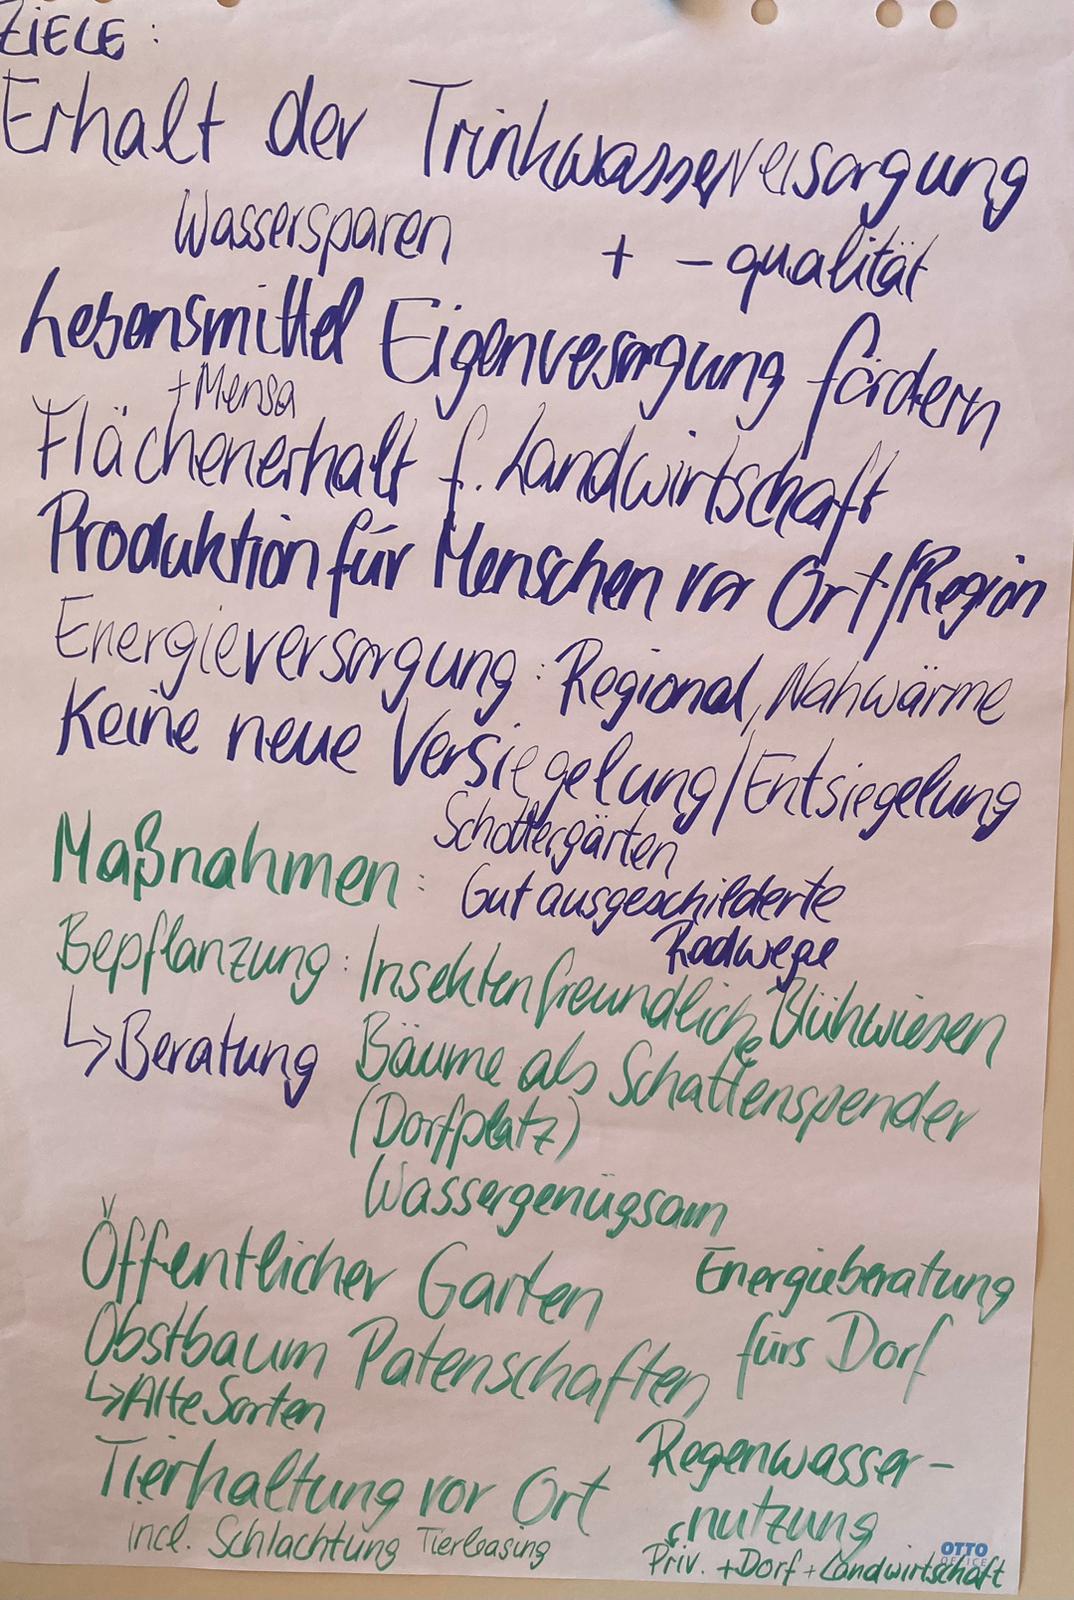 ZIELE:
Erhalt der Trinkwasserversorgung
Wassersparen + - qualität
Lebensmittel Eigenversorgung fördern
+ Mensa
Flächenerhalt f. Landwirtschaft
Produktion für Menschen vor Ort/Region
Energieversorgung: Regional, Nahwärme
Keine neue Versiegelung/Entsiegelung
Schottergärten
Maßnahmen:
Gut ausgeschilderte
Radwege
Bepflanzung: Insektenfreundliche Blühwiesen
↳ Beratung
Bäume als Schattenspender
(Dorfplatz)
Wassergenügsam
Öffentlicher Garten
Energieberatung
fürs Dorf
Obstbaum Patenschaften
↳ Alte Sorten
Tierhaltung vor Ort
incl. Schlachtung Tierleasing
Regenwasser-
nutzung
Priv. + Dorf + Landwirtschaft
OTTO
OFFICE